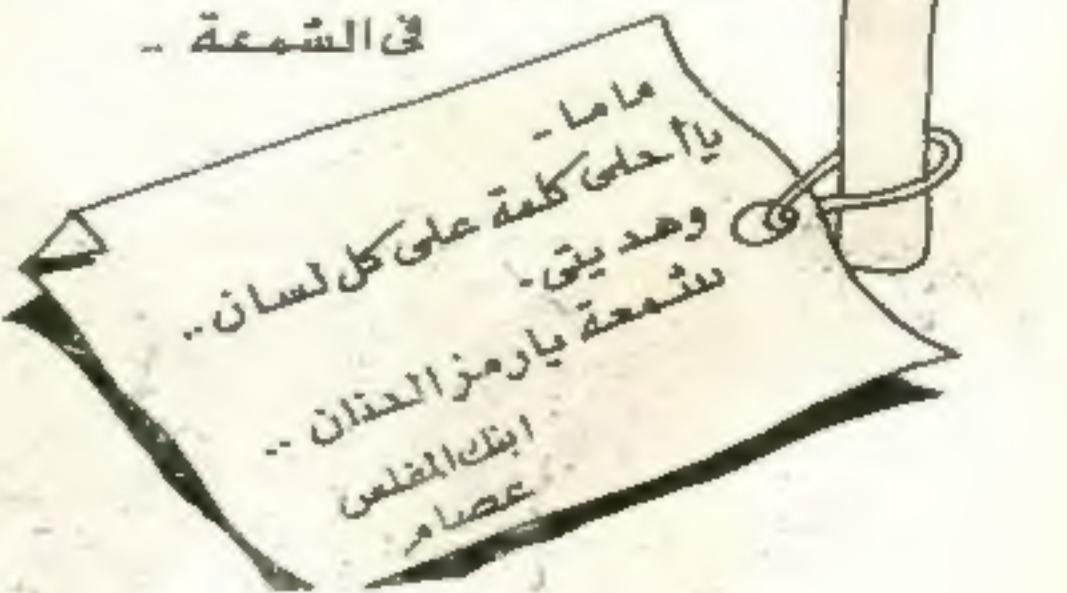 في الشمعة -
ماما -
يا أحلى كلمة على كل لسان ..
وهديتي -
شمعة يا رمز الحنان ..
ابنك المفلس
عصام